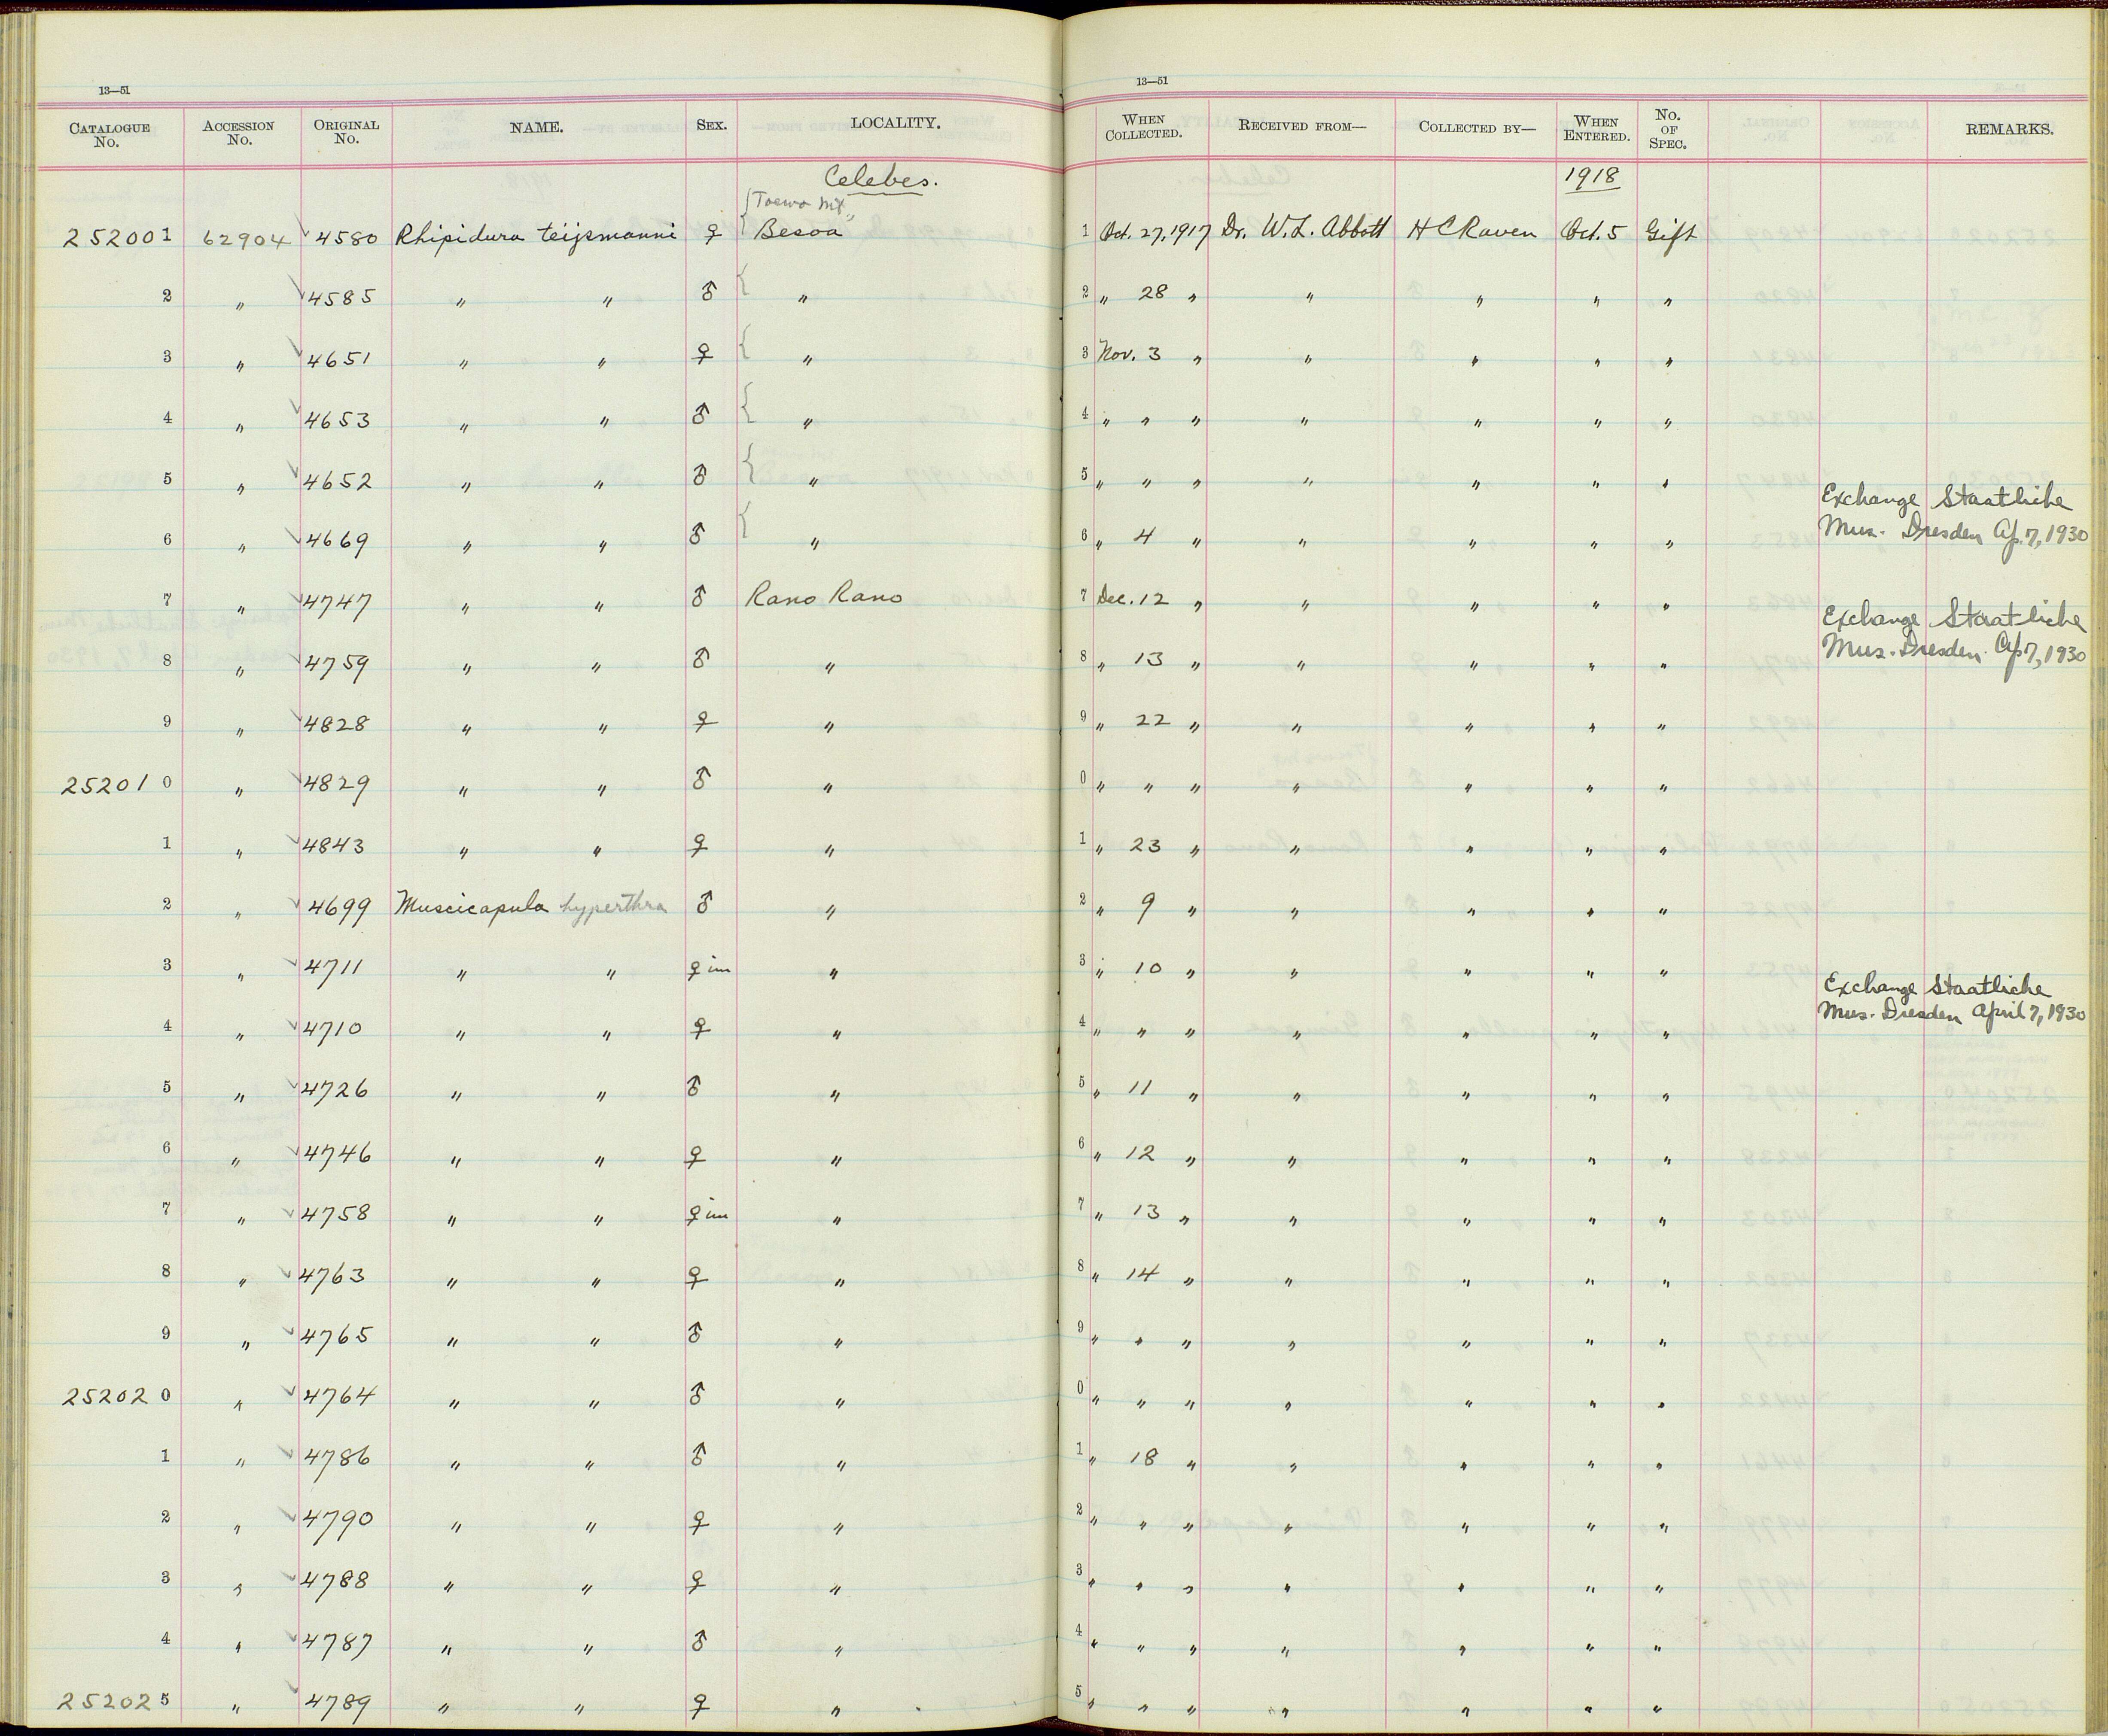 13—51
13—51
CATALOGUE No. ACCESSION No. ORIGINAL No. NAME. SEX. LOCALITY. WHEN COLLECTED. RECEIVED FROM— COLLECTED BY— WHEN ENTERED. No. OF SPEC. REMARKS.
Celebes. 1918
{Toewo Mt,,
252001 62904 √ 4580 Rhipidura teijsmanni ♀ { Besoa 1 Oct. 27, 1917 Dr. W. L. Abbott H C Raven Oct. 5 Gift
2 " √ 4585 " " ♂ { " 2 " 28 " " " " "
3 " √ 4651 " " ♀ { " 3 Nov. 3 " " " " "
4 " √ 4653 " " ♂ { " 4 " " " " " " "
5 " √ 4652 " " ♂ { " 5 " " " " " " "
Exchange Staatliche
6 " √ 4669 " " ♂ { " 6 " 4 " " " " " Mus. Dresden Ap. 7, 1930
7 " √ 4747 " " ♂ Rano Rano 7 Dec. 12 " " " " "
Exchange Staatliche
8 " √ 4759 " " ♂ " 8 " 13 " " " " " Mus. Dresden. Ap 7, 1930
9 " √ 4828 " " ♀ " 9 " 22 " " " " "
252010 " √ 4829 " " ♂ " 0 " " " " " " "
1 " √ 4843 " " ♀ " 1 " 23 " " " " "
2 " √ 4699 Muscicapula hyperthra ♂ " 2 " 9 " " " " "
3 " √ 4711 " " ♀ im " 3 " 10 " " " " "
Exchange Staatliche
4 " √ 4710 " " ♀ " 4 " " " " " " " Mus. Dresden April 7, 1930
5 " √ 4726 " " ♂ " 5 " 11 " " " " "
6 " √ 4746 " " ♀ " 6 " 12 " " " " "
7 " √ 4758 " " ♀ im " 7 " 13 " " " " "
8 " √ 4763 " " ♀ " 8 " 14 " " " " "
9 " √ 4765 " " ♂ " 9 " " " " " " "
252020 " √ 4764 " " ♂ " 0 " " " " " " "
1 " √ 4786 " " ♂ " 1 " 18 " " " " "
2 " √ 4790 " " ♀ " 2 " " " " " " "
3 " √ 4788 " " ♀ " 3 " " " " " " "
4 " √ 4787 " " ♂ " 4 " " " " " " "
252025 " √ 4789 " " ♀ " 5 " " " " " " "